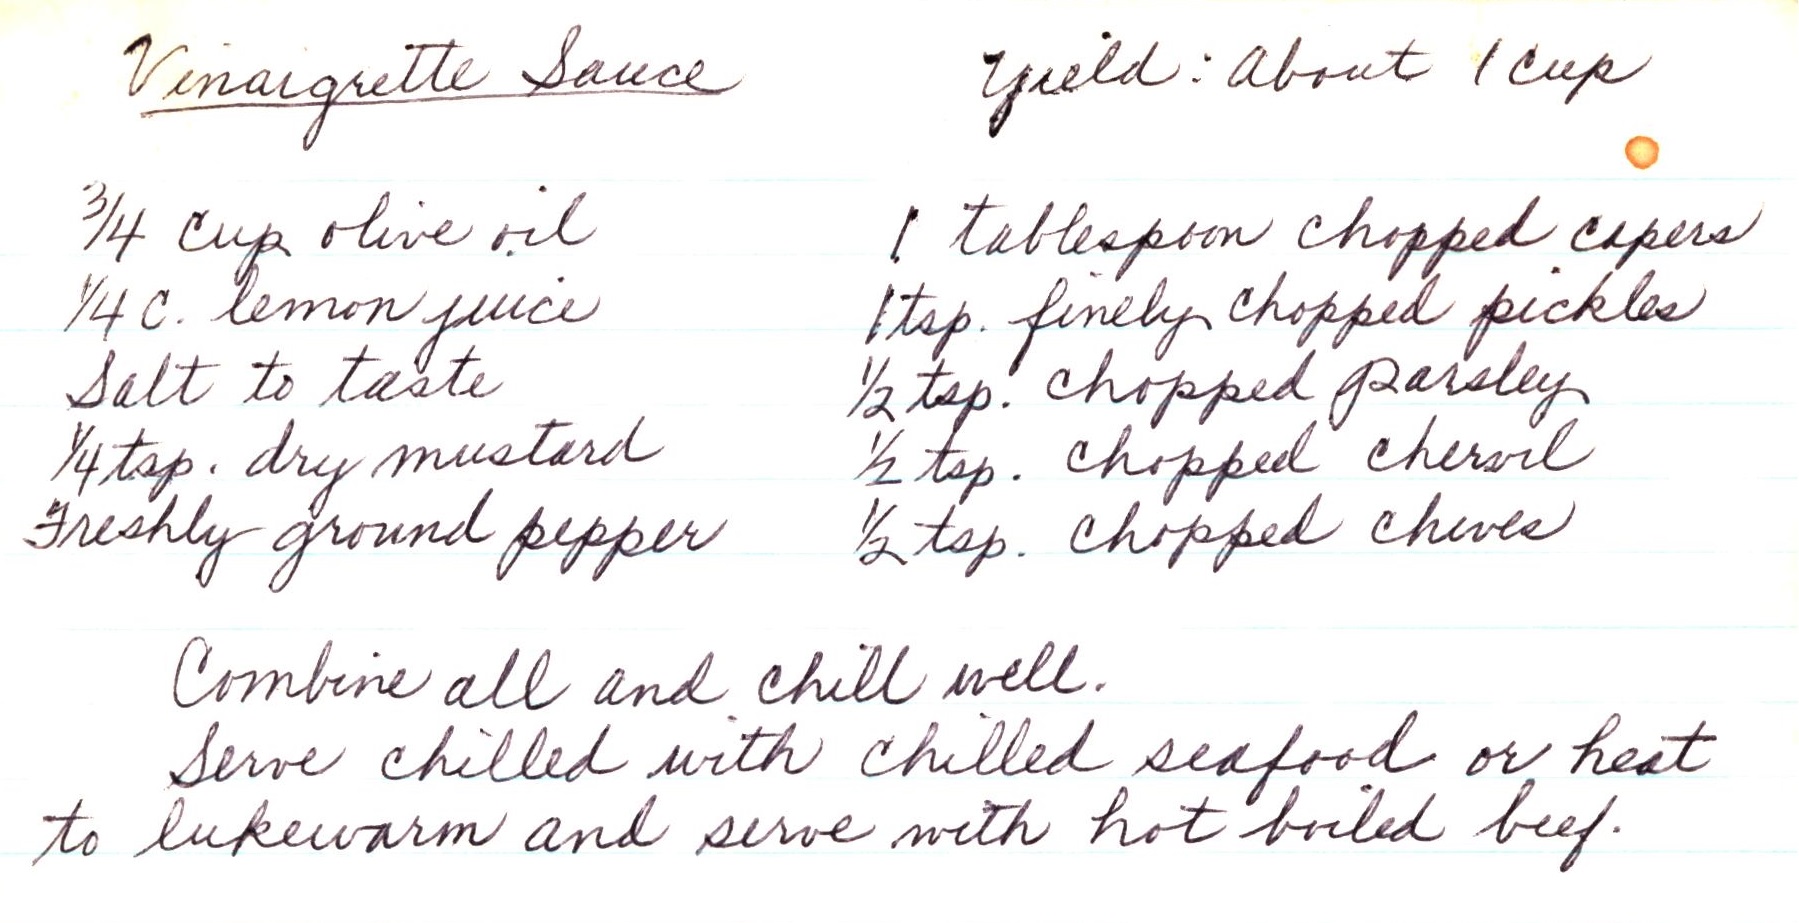 Vinaigrette Sauce
Yield: About 1 cup
3/4 cup olive oil
1/4 c. lemon juice
Salt to taste
1/4 tsp. dry mustard
Freshly ground pepper
1 tablespoon chopped capers
1 tsp. finely chopped pickles
1/2 tsp. chopped parsley
1/2 tsp. chopped chervil
1/2 tsp. chopped chives
Combine all and chill well.
Serve chilled with chilled seafood or heat
to lukewarm and serve with hot boiled beef.